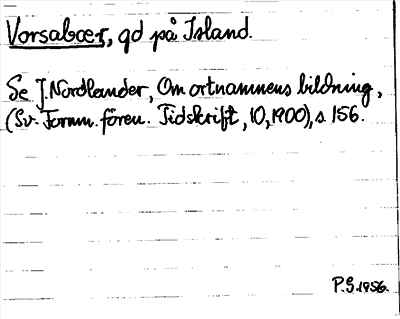 Vorsabœr, gd på Island.
Se J. Nordlander, Om ortnamnens bildning,
(Sv. Fornm. fören. Tidskrift, 10, 1900), s. 156.
P.S. 1956.